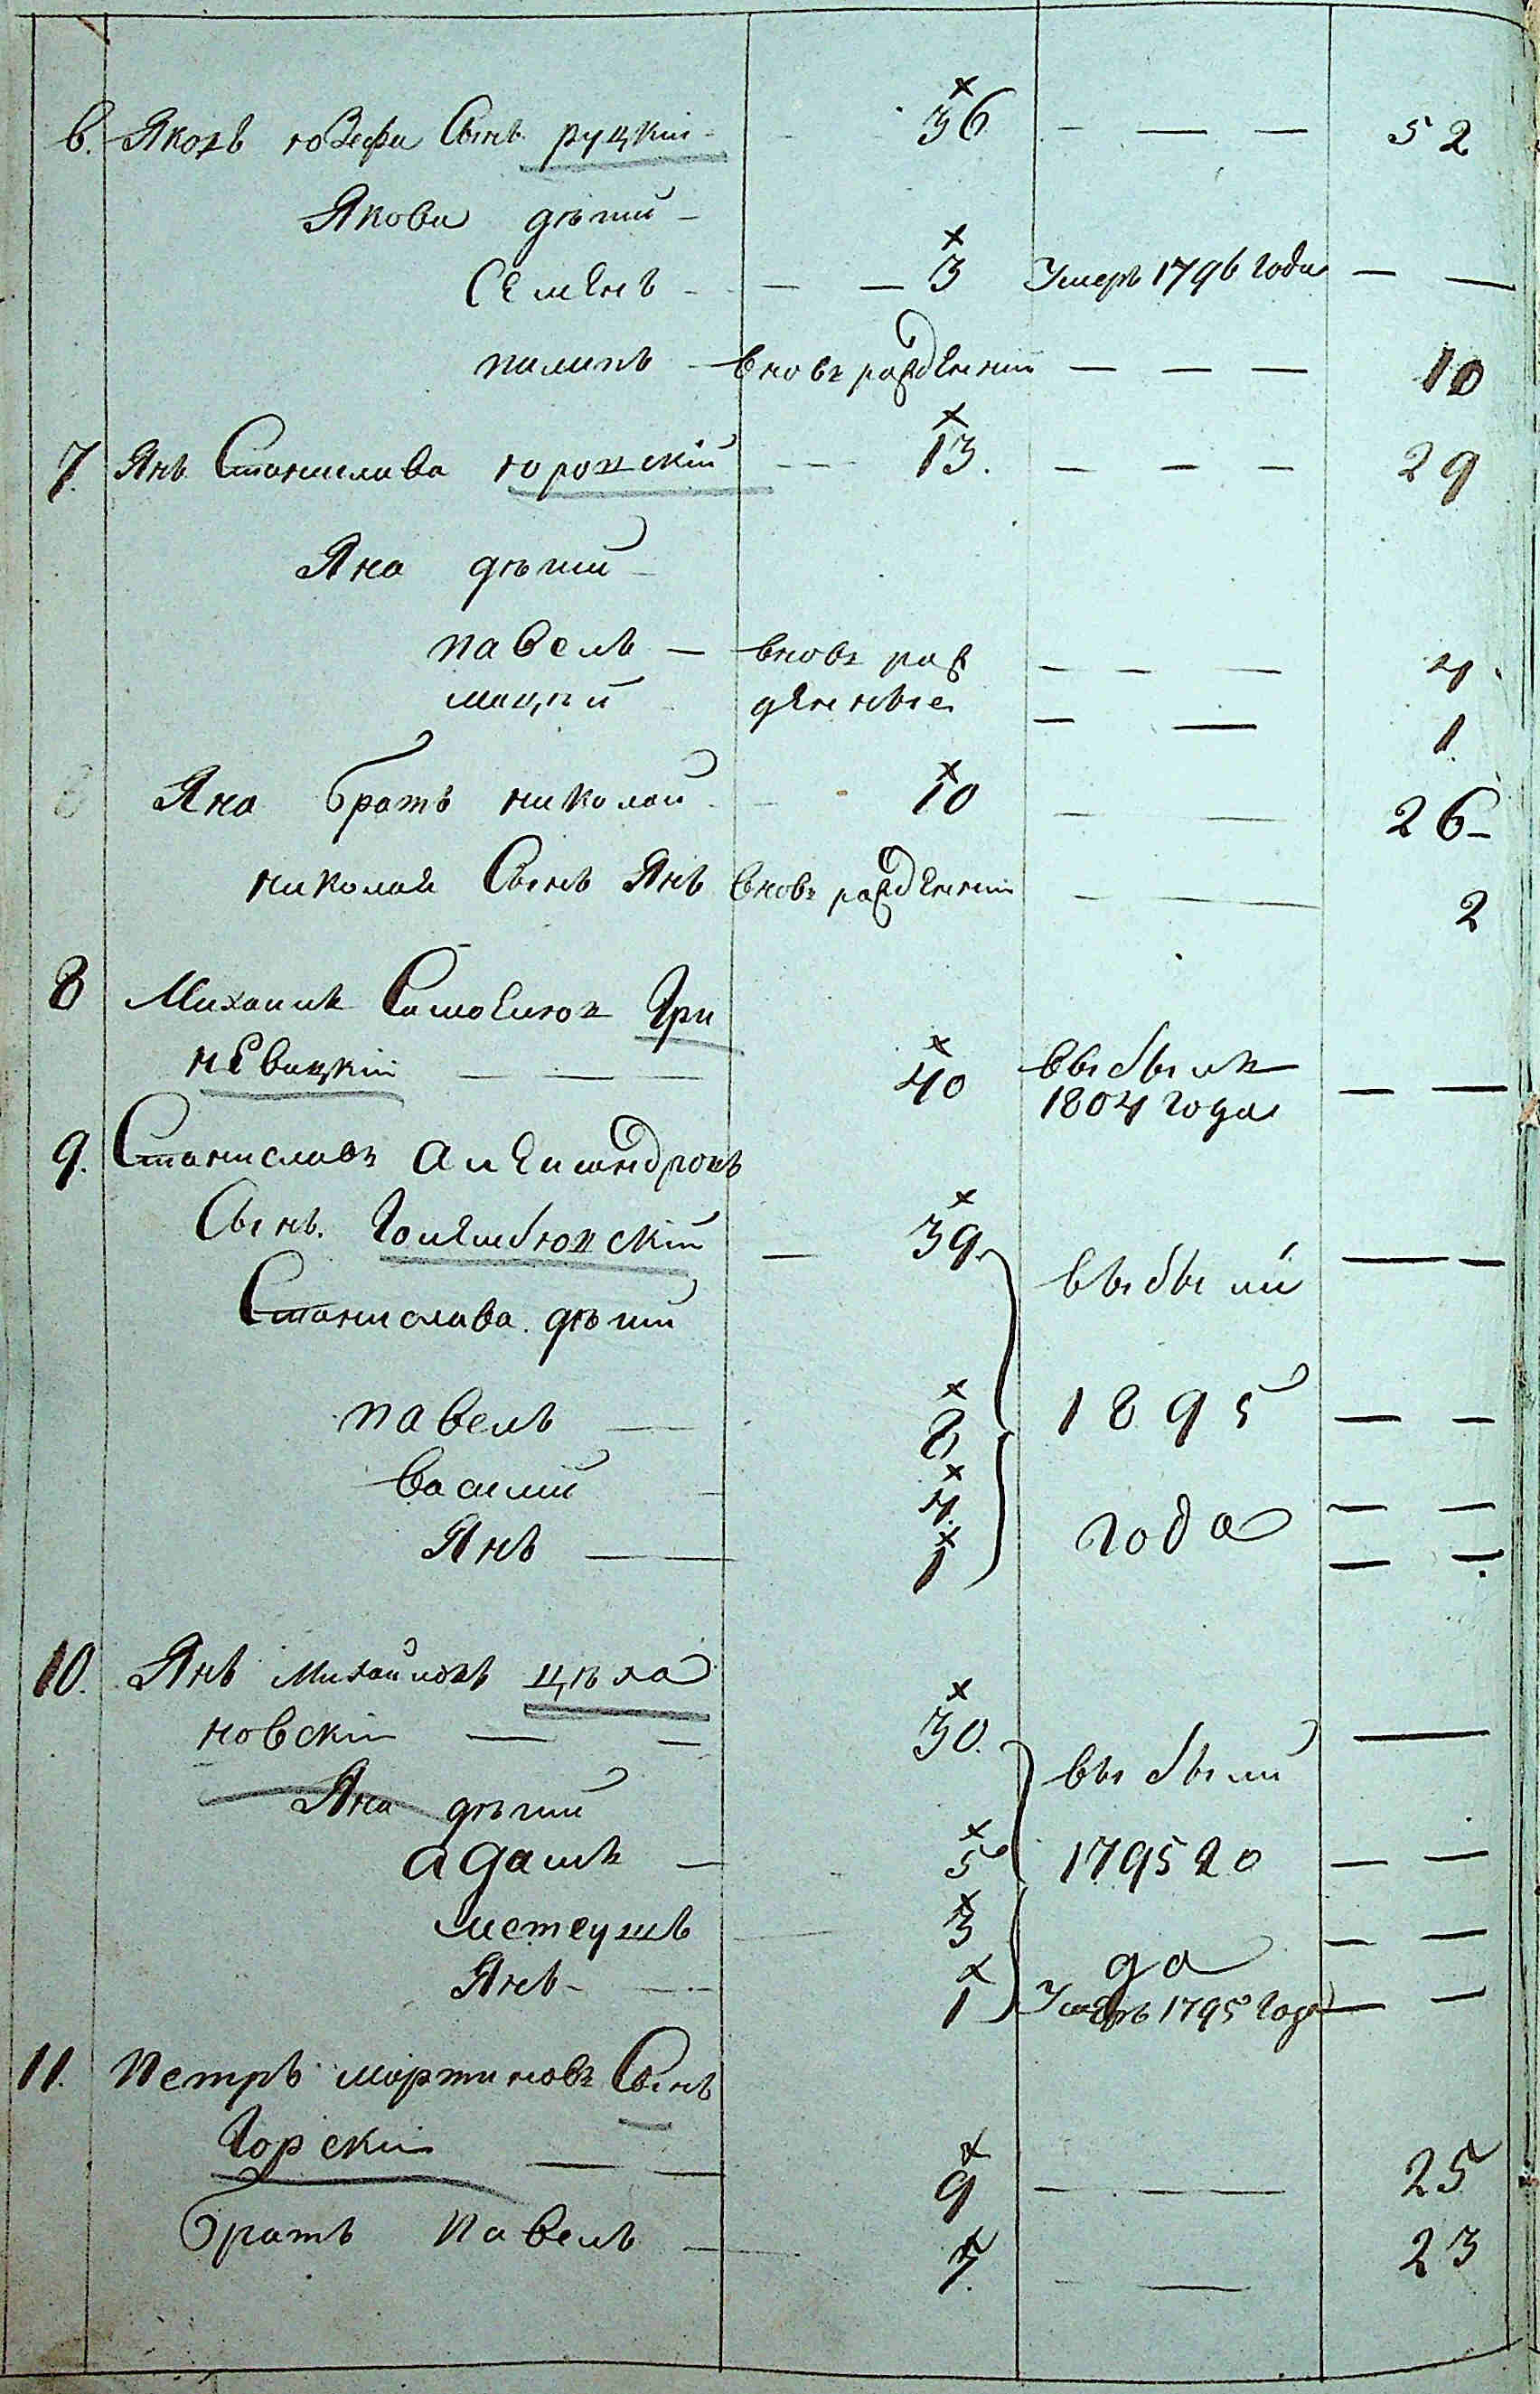 6. Яковъ юзефа Сынъ руцкій 36 52
Якова дѣти
Семенъ 3 Умеръ 1796 года
пилипъ вновь рожденный 10
7. Янъ Станислава юрожскій 13. 29
Яна дѣти
павелъ вновь рож 4
мацѣй денные 1.
Яна братъ николай 10 26
николая Сынъ Янъ вновь рожденный 2
8 Михаилъ Гри
невицкій 40 выбылъ
1804 года
9. Станиславъ александровъ
Сынъ. Голембіовскій 39. выбыли
Станислава дѣти
павелъ 8 1895
василій 4.
Янъ 1 года
10. Янъ Михайловъ цѣха
новскій 30. выбыли
Яна дѣти
адамъ 5 1795 го
метеушъ 3
да
Янъ 1 Умеръ 1795 года
11. Петръ мартиновъ Сынъ
Горскій 9 25
братъ павелъ 7. 23